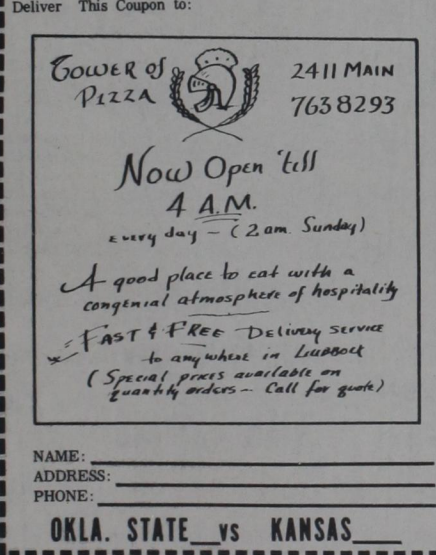 Deliver This Coupon to:
Tower of Pizza
2411 Main
763 8293
Now Open 'till
4 A.M.
every day - (2 am. Sunday)
A good place to eat with a
congenial atmosphere of hospitality
Fast & Free Delivery service
to anywhere in Lubbock
(Special prices available on
quantity orders - Call for quote)
NAME:
ADDRESS:
PHONE:
OKLA. STATE__vs KANSAS____